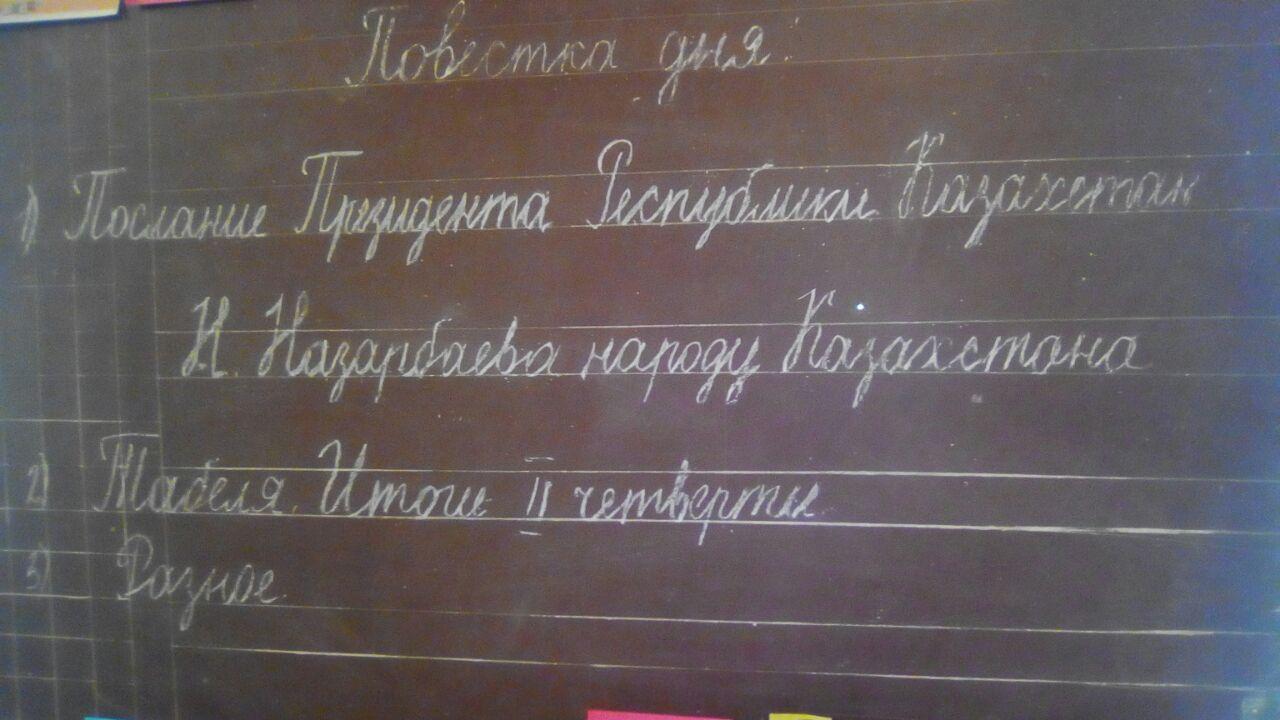 Повестка дня:
1) Послание Президента Республики Казахстан
Н. Назарбаева народу Казахстана
2) Табеля. Итоги II четверти
3) Разное.